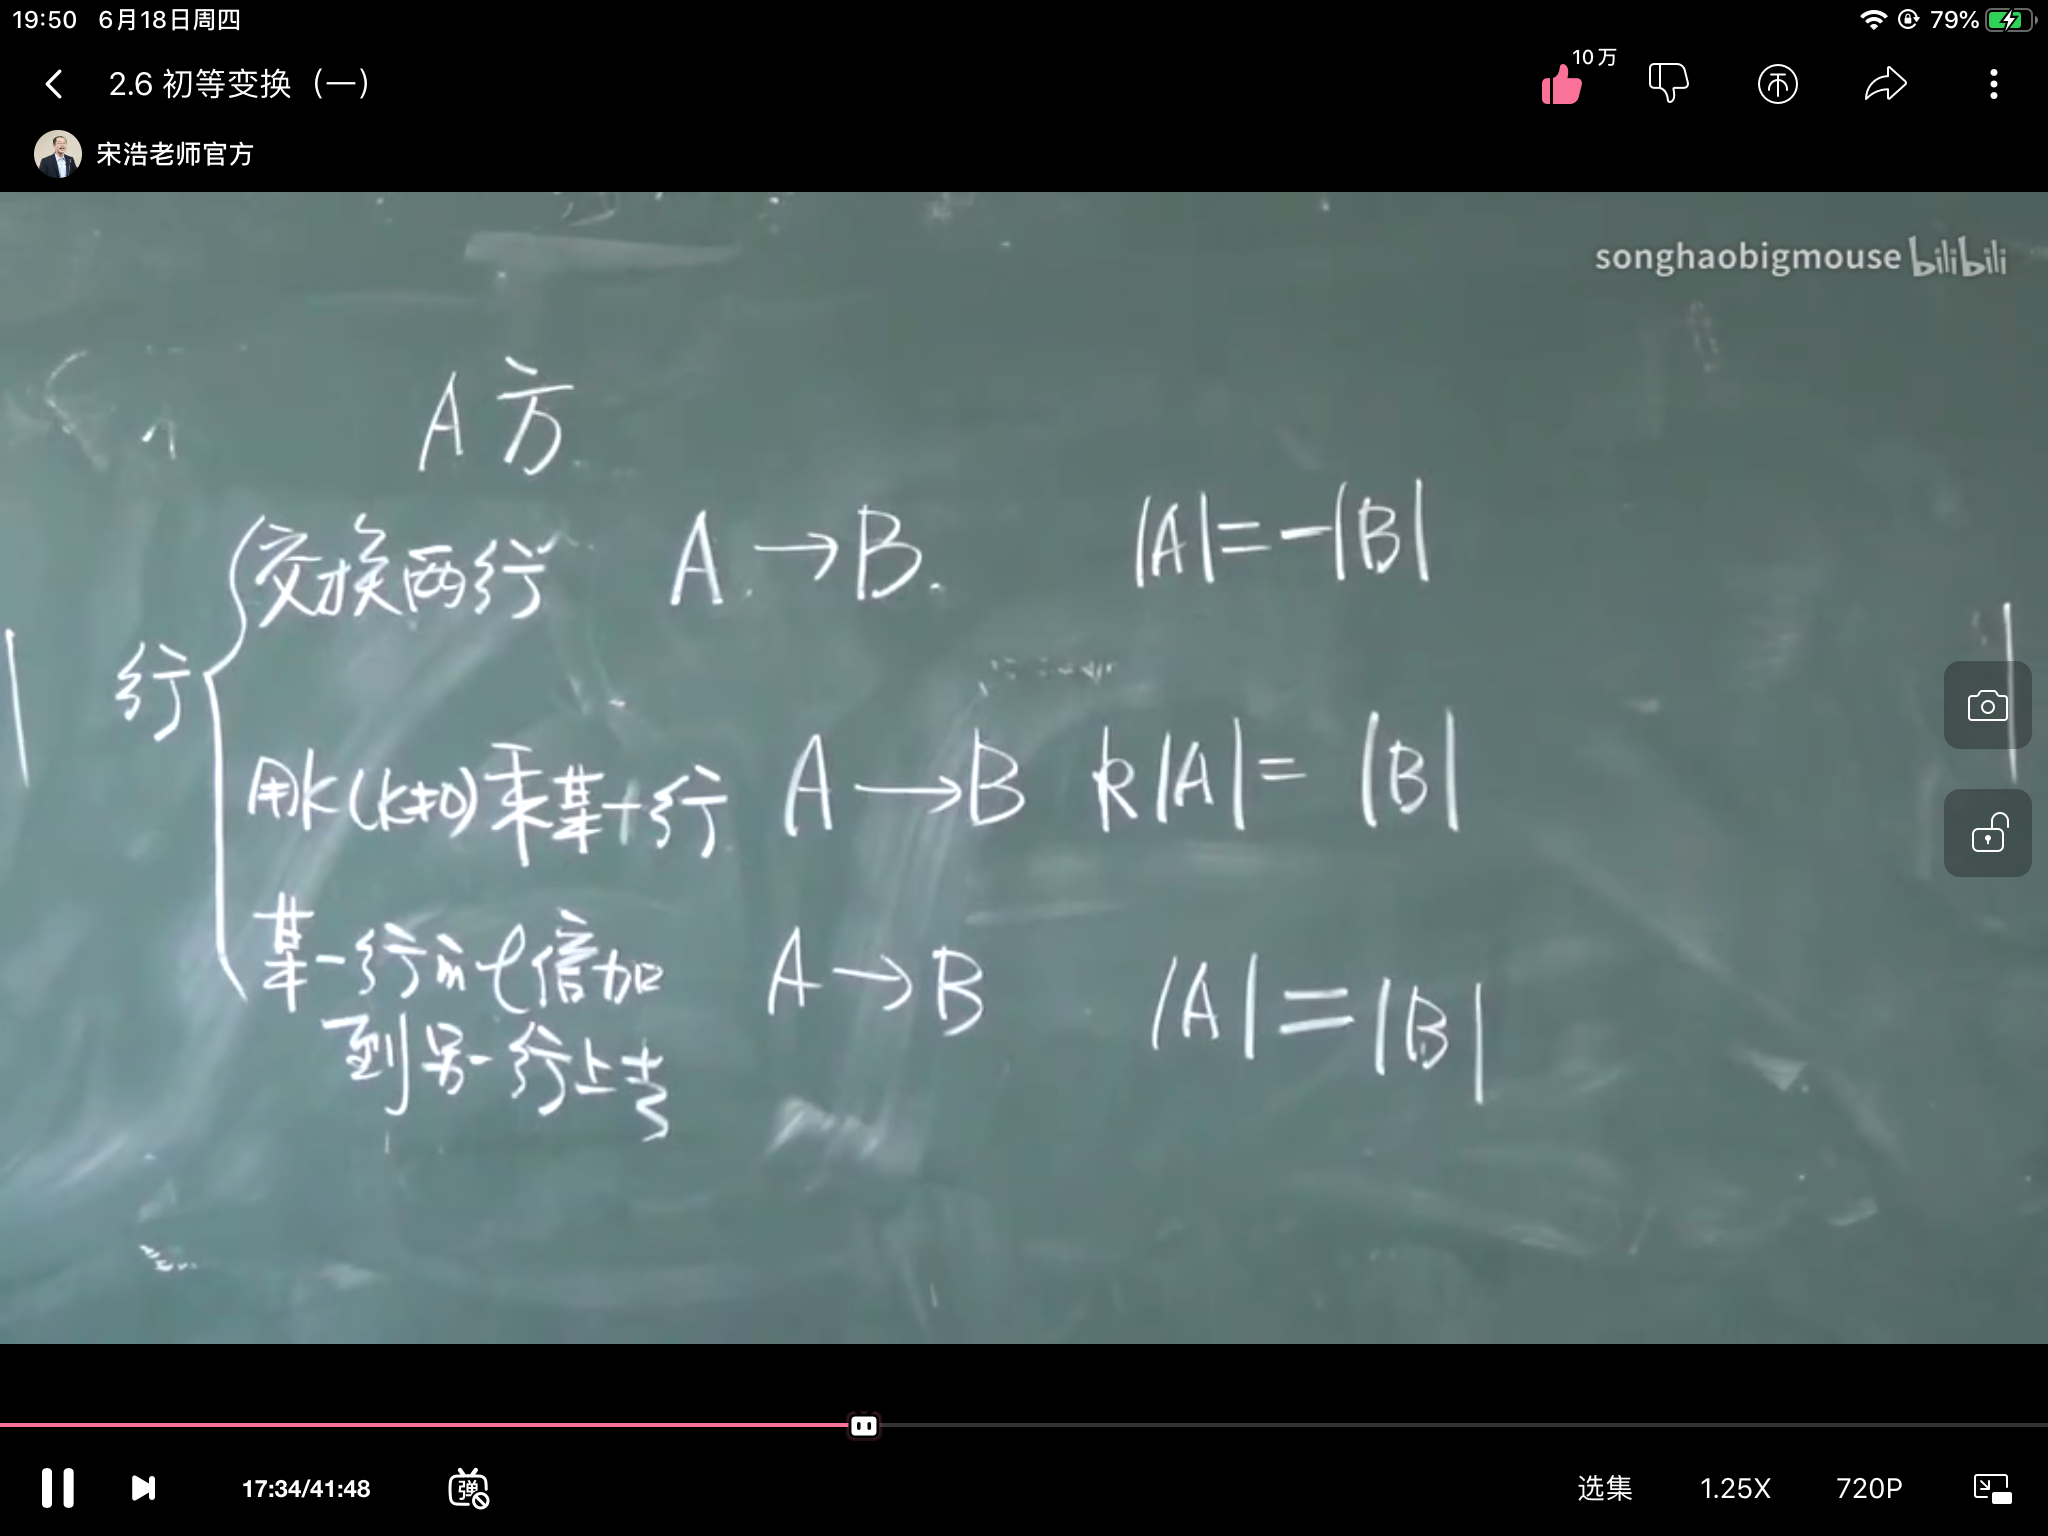 19:50 6月18日周四
79%
2.6 初等变换（一）
10万
宋浩老师官方
songhaobigmouse bilibili
A 方
行
交换两行 A → B. |A| = -|B|
用k(k≠0)乘某一行 A → B k|A| = |B|
某一行的l倍加 A → B |A| = |B|
到另一行上去
17:34/41:48
弹
选集
1.25X
720P